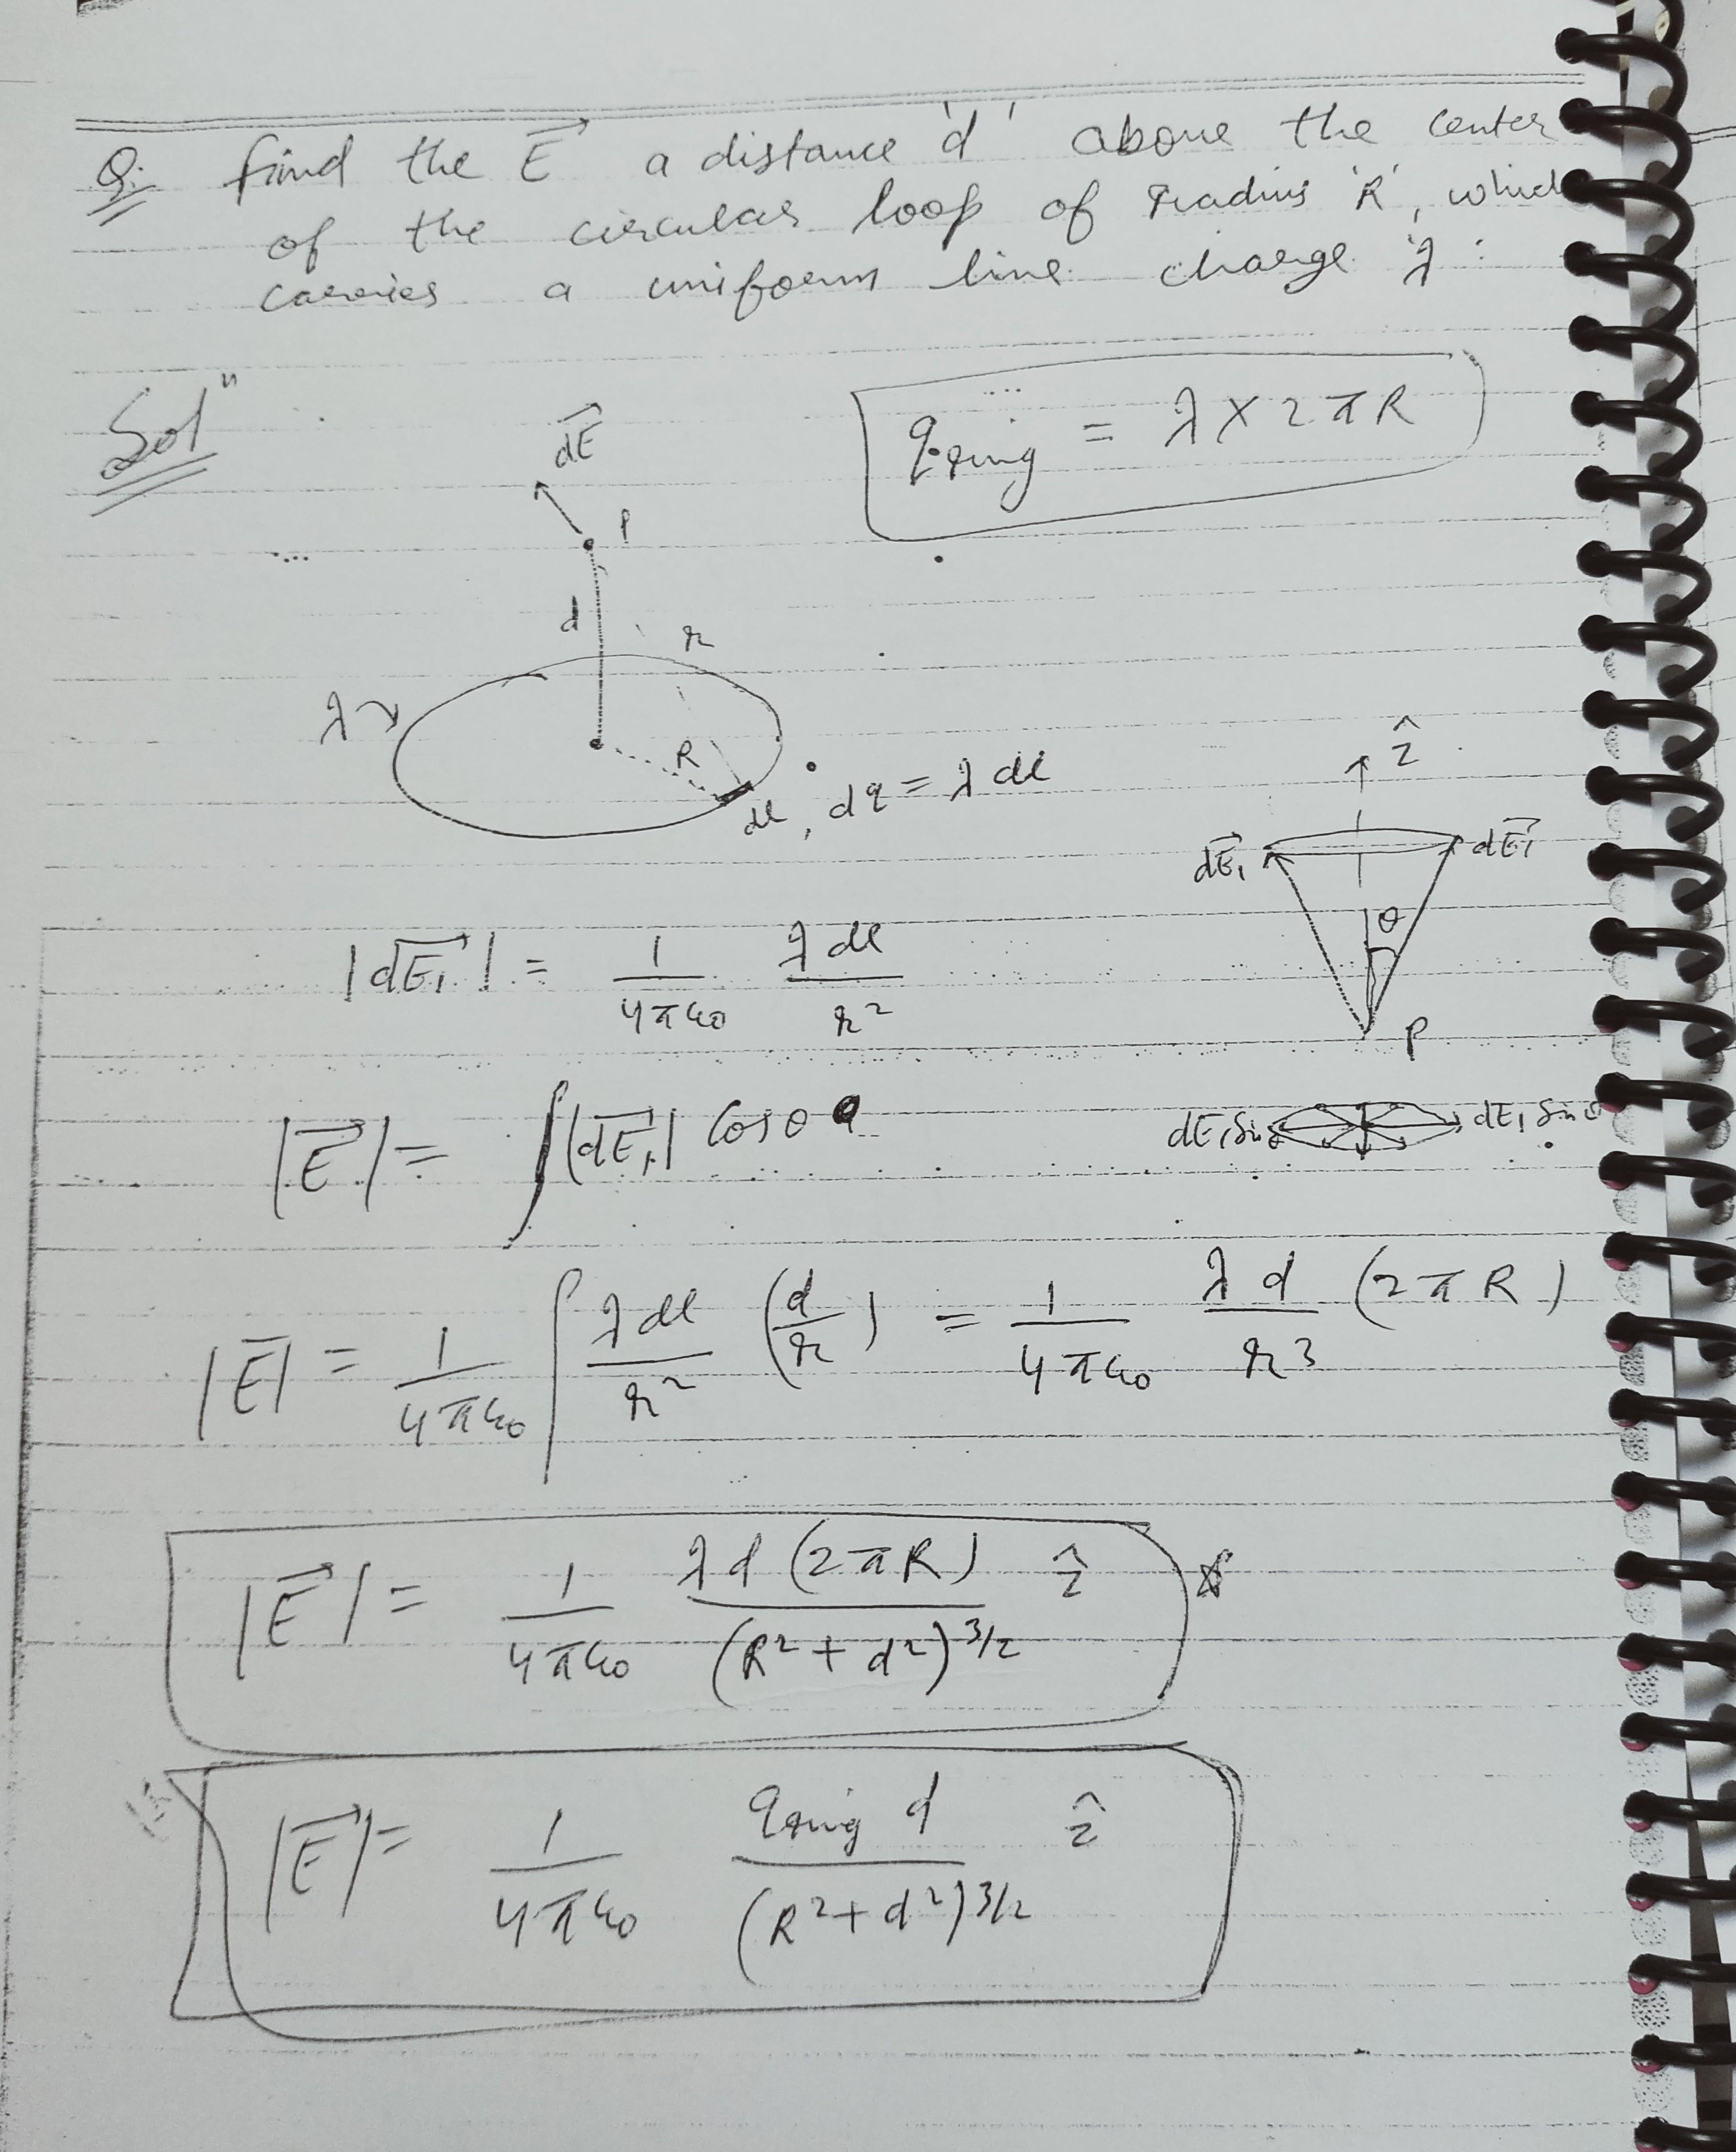 Q: find the E⃗ a distance 'd' above the center
of the circular loop of radius 'R', which
carries a uniform line charge λ :
Solⁿ
q_ring = λ × 2πR
dE⃗
P
d
r
λ
R
dl, dq = λ dl
ẑ
dE⃗₁ dE⃗₁
θ
P
|dE⃗₁| = 1/4πε₀ λ dl/r²
|E⃗| = ∫|dE⃗₁| Cosθ
dE₁ Sinθ dE₁ Sinθ
|E⃗| = 1/4πε₀ ∫ λ dl/r² (d/r) = 1/4πε₀ λ d/r³ (2πR)
|E⃗| = 1/4πε₀ λ d (2πR)/(R² + d²)^3/2 ẑ
|E⃗| = 1/4πε₀ q_ring d/(R² + d²)^3/2 ẑ